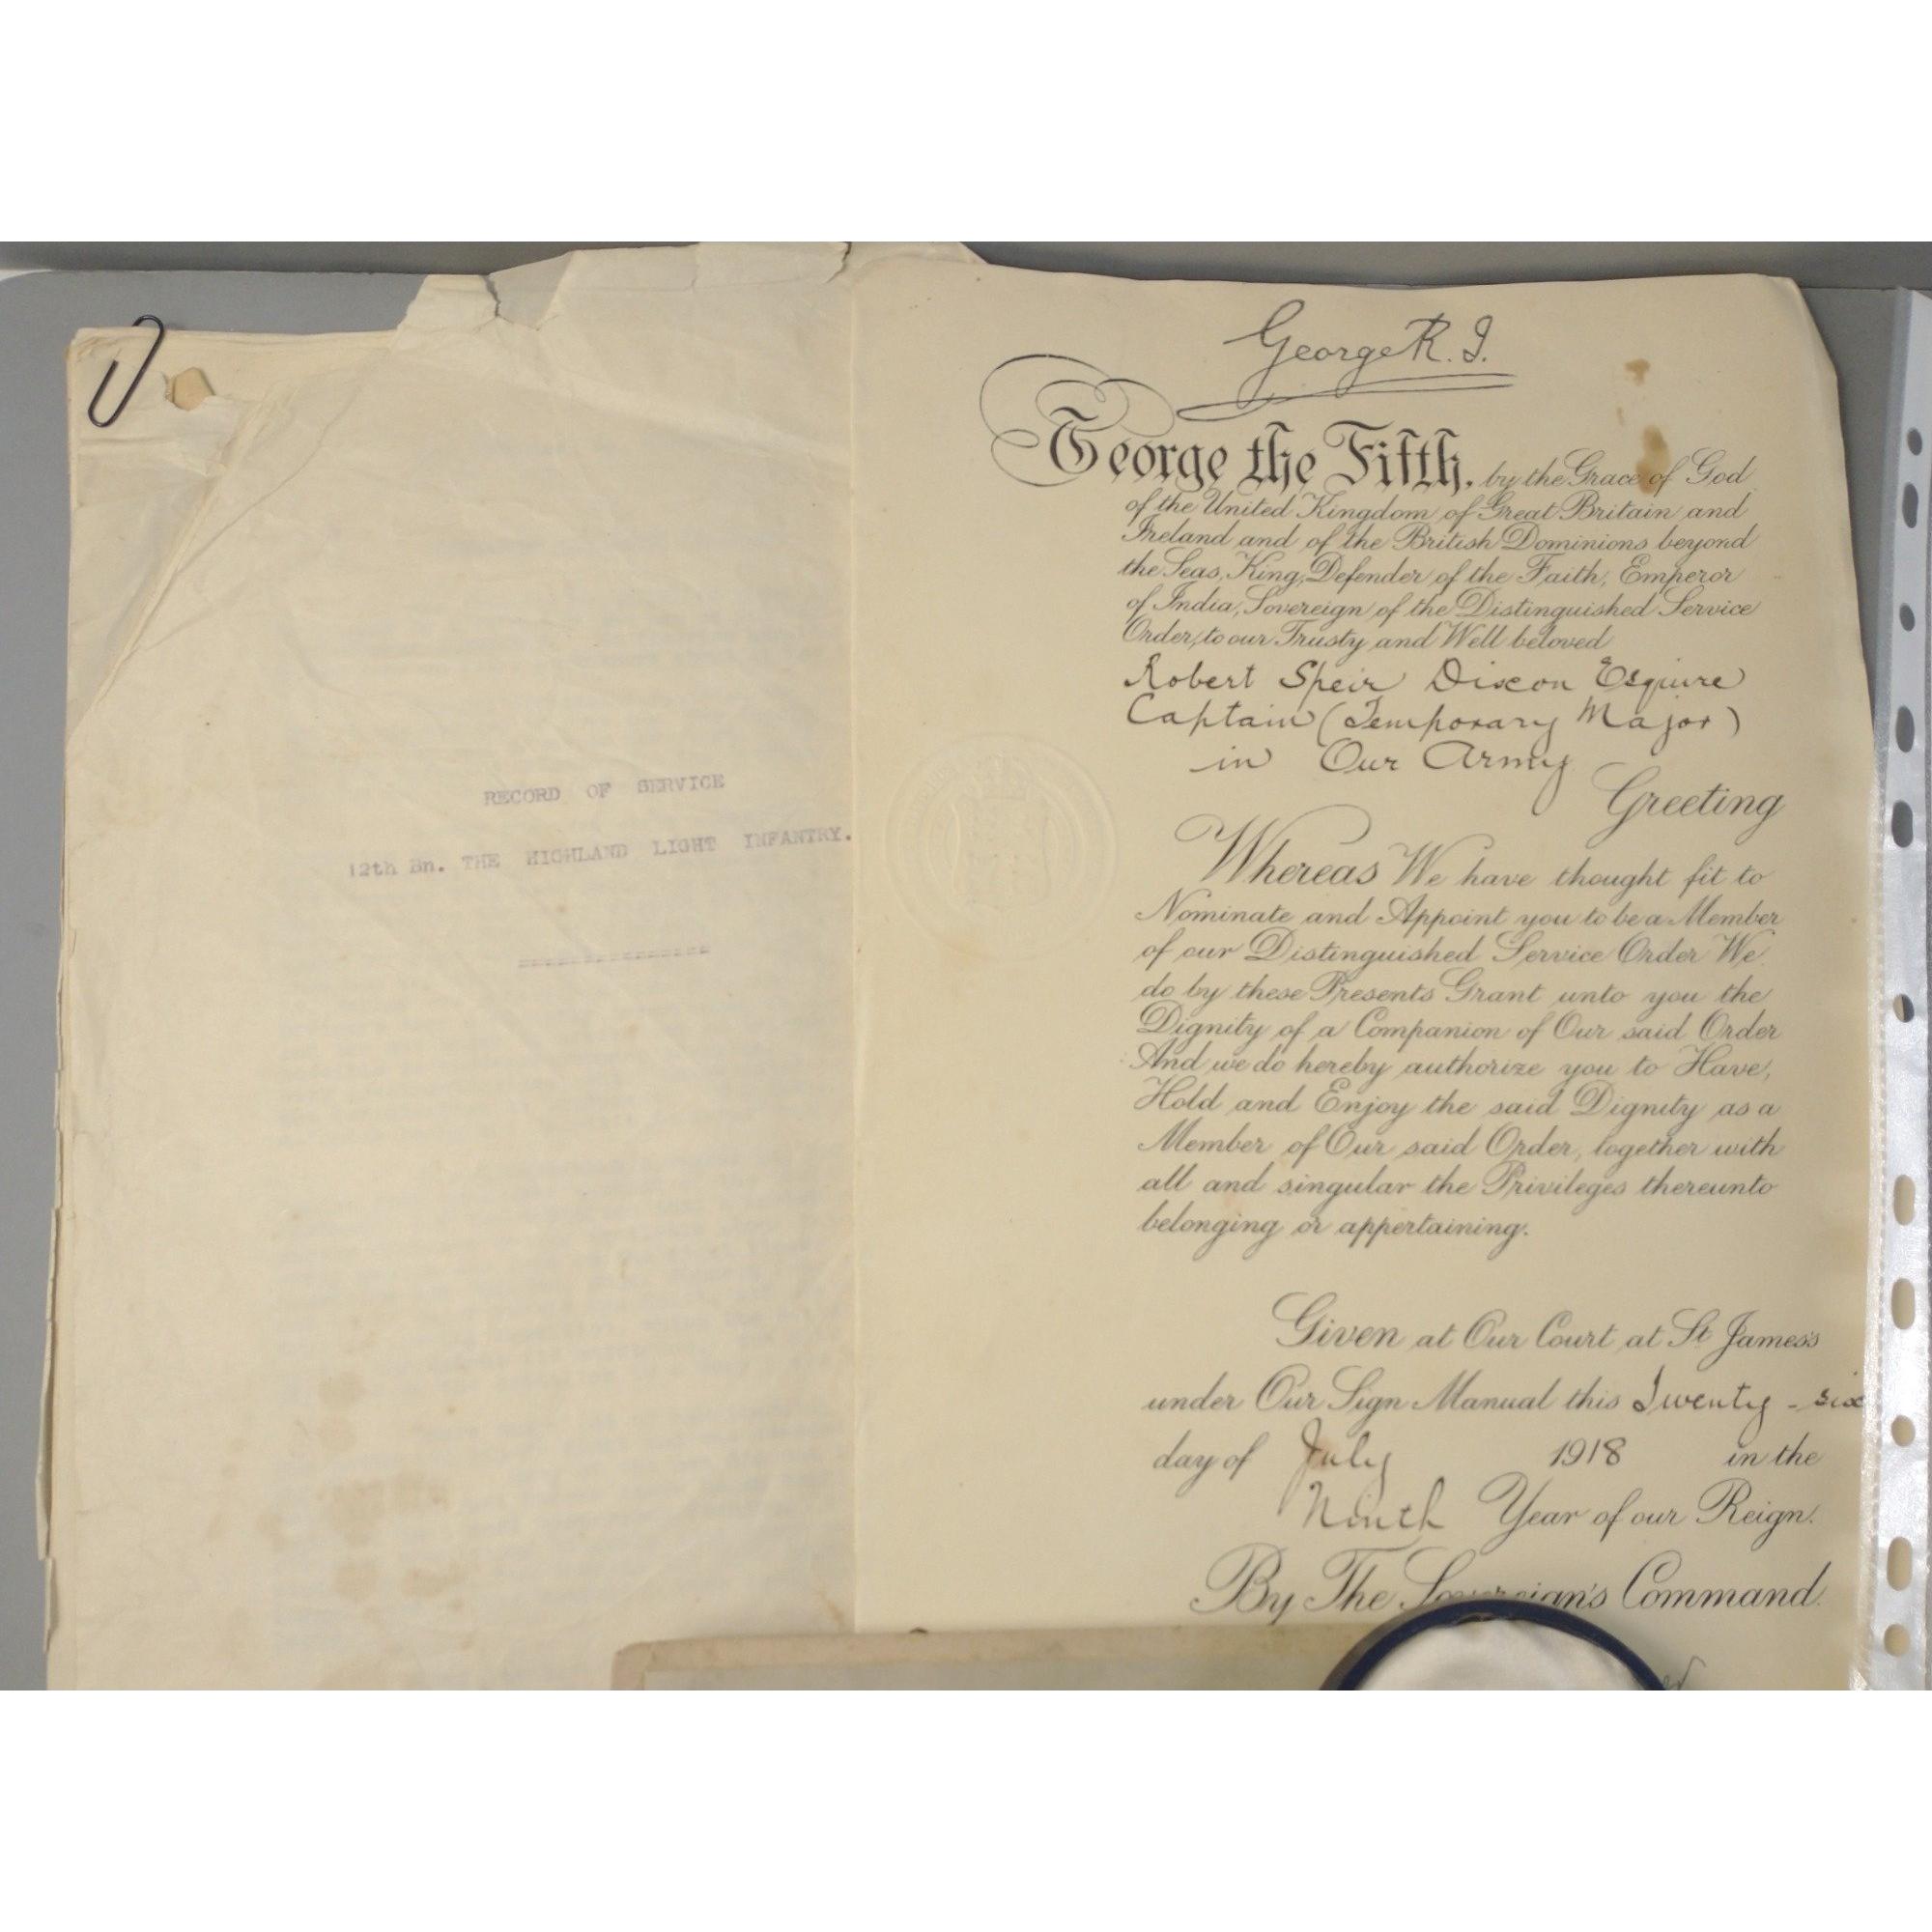 RECORD OF SERVICE
12th Bn. THE HIGHLAND LIGHT INFANTRY.
George R.I.
George the Fifth, by the Grace of God
of the United Kingdom of Great Britain and
Ireland and of the British Dominions beyond
the Seas, King, Defender of the Faith, Emperor
of India, Sovereign of the Distinguished Service
Order, to our Trusty and Well beloved
Robert Speir Dixon Esquire
Captain (Temporary Major)
in Our Army
Greeting
Whereas We have thought fit to
Nominate and Appoint you to be a Member
of our Distinguished Service Order We
do by these Presents Grant unto you the
Dignity of a Companion of Our said Order
And we do hereby authorize you to Have,
Hold and Enjoy the said Dignity as a
Member of Our said Order, together with
all and singular the Privileges thereunto
belonging or appertaining.
Given at Our Court at St James's
under Our Sign Manual this Twenty-six
day of July 1918 in the
Ninth Year of our Reign.
By The Sovereign's Command.